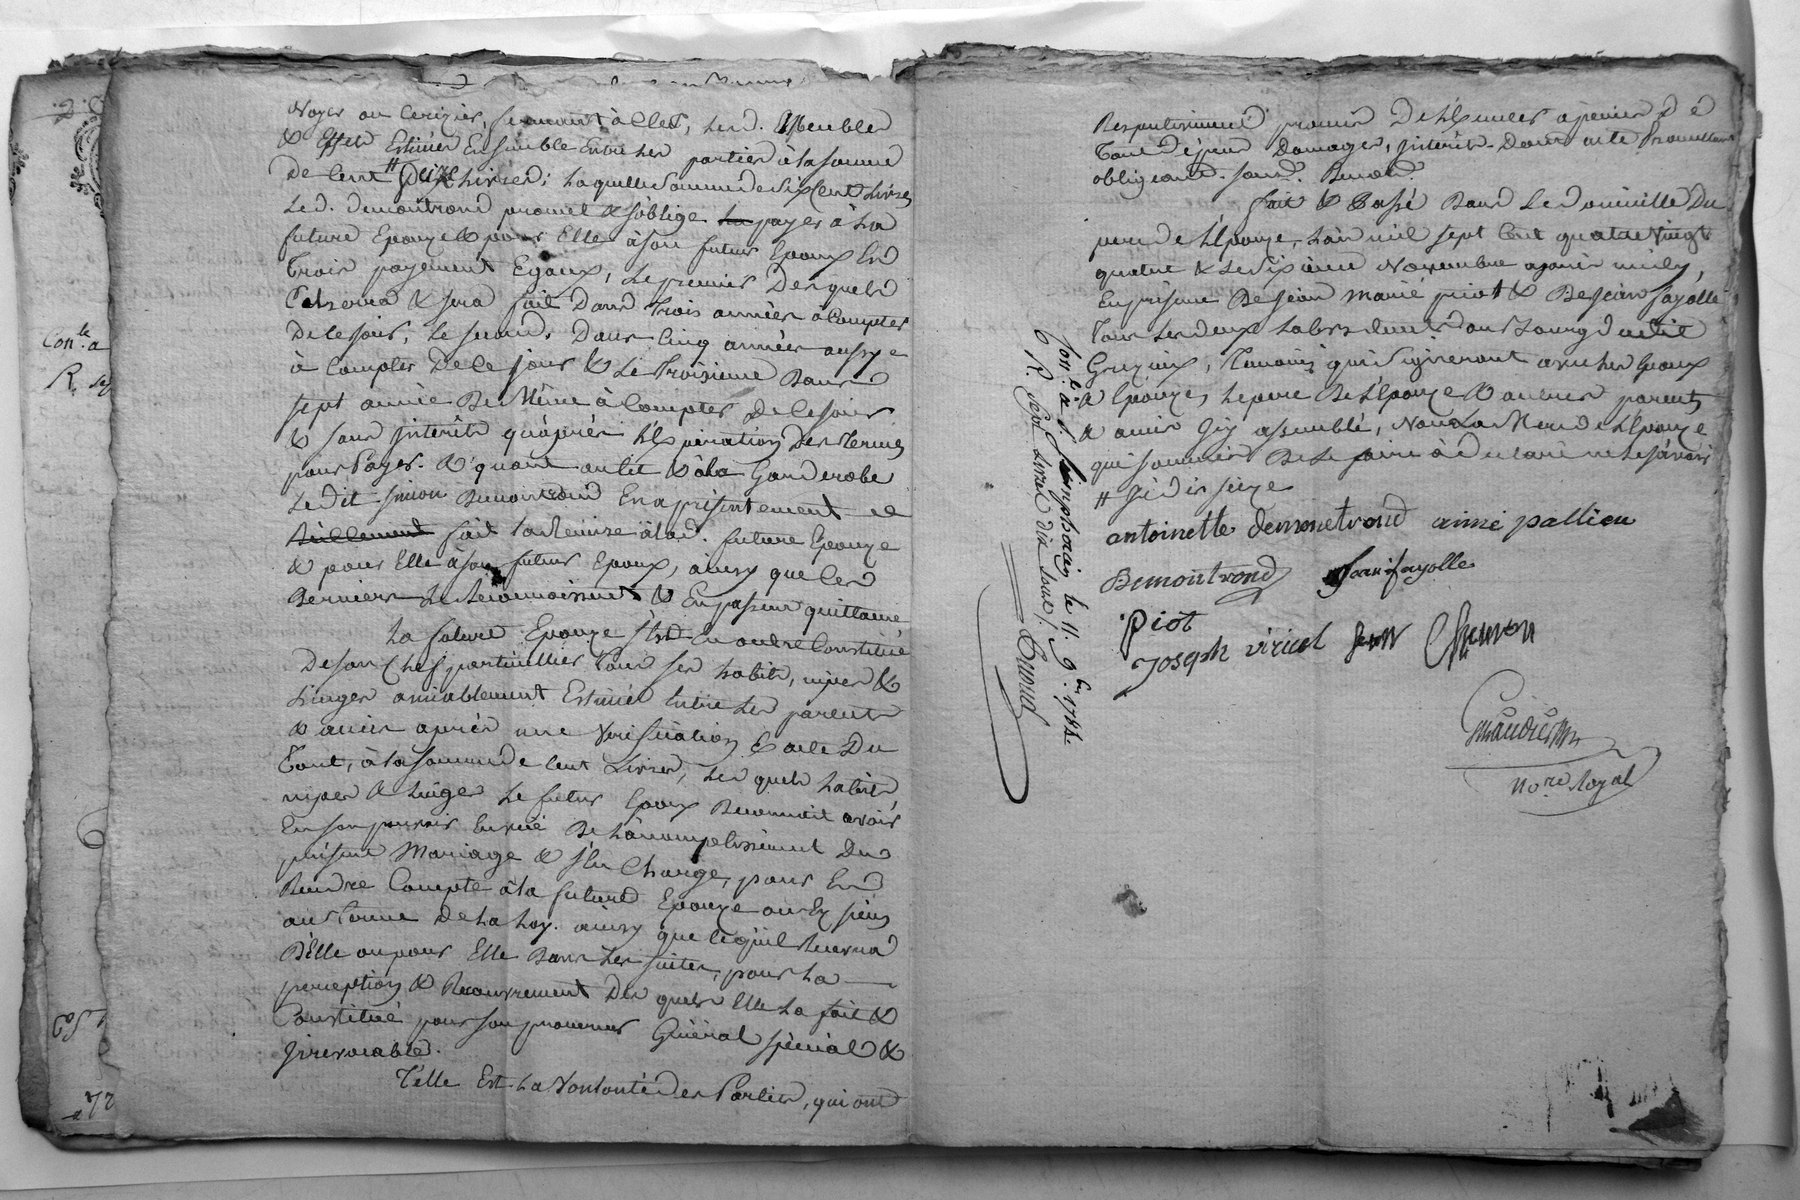 Noyer ou Cerizier, fermant à Clef, Lesd. Meubles
& Effets Estimés Ensemble Entre Les parties à la somme
De Cent # Dix Livres; Laquelle Somme de six Cent Livres
Led. demontrond promet & s'oblige payer à La
future Epouze & pour Elle à son futur Epoux En
Trois payement Egaux, Le premier Desquels
Echerra & sera fait Dans Trois années à Compter
De Ce Jour, Le second, Dans Cinq années aussy
à Compter De Ce Jour & Le Troisieme Dans
sept année De Même à Compter De Ce Jour
& sans Intérêts qu'après L'Expiration Des Termes
pour Payer. & quant au Lit & à La Garderobe
Ledit Simon Demontrond En a présentement
réellement fait La Remise à Lad. future Epouze
& pour Elle à son futur Epoux, ainsy que Ces
Derniers Le Reconnoissent & En passent quittance
La future Epouze s'Est En outre Constitué
De son Chef particullier Tous ses habits, nipes &
Linges amiablement Estimés Entre Les parents
& amis après une Verification Exacte Du
Tout, à La somme de Cent Livres, Les quels habits
nipes & Linges Le futur Epoux Reconnoit avoir
En son pouvoir En vuë De L'accomplissement Du
présent Mariage & s'En Charge, pour En
Rendre Compte à La future Epouze ou Ex siens
aux Terme De La Loy. ainsy que Ce qu'il Recevra
D'Elle ou pour Elle Dans Les suites, pour La
perception & Recouvrement Des quels Elle La fait &
Constitué pour son procureur Général spécial &
Irrevocable.
Telle Est La Vonlonté des Parties, qui ont
Respectivement promis De L'Executer à peine De
Tous Dépens Domages, Intérêts. Dont acte
obligeant. Renonc.
fait & Passé Dans Le Domicille Du
pere de L'Epouze, L'an mil sept Cent quatre Vingt
quatre & Le sixieme Novembre après midy,
En présence De Jean Marie piot & De Jean fayolle
Tous Les deux Laboureurs du Bourg dudit
Grezieux, Temoins qui signeront avec Les Epoux
& Epouze, Le pere De L'Epouze & autres parents
& amis Icy assemblé, Non La Mere de L'Epouze
qui sommée De Le faire à declaré ne Le sçavoir
#
antoinette demontrond aimé pallieu
Demontrond Jean fayolle
Piot
Joseph viricel
No.re Royal
Con.le à St Simphorien le 11. 9.bre 1784.
R. Sept Livres dix sous
Con.le a
R. sep